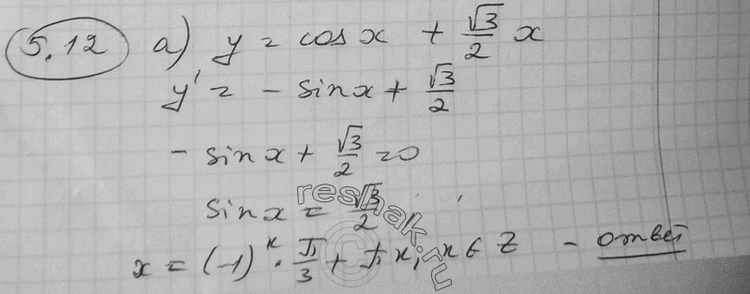 5.12 а) y = cos x + √3/2 x
y' = - sin x + √3/2
- sin x + √3/2 = 0
sin x = √3/2
x = (-1)^к · π/3 + πк, к ∈ Z - ответ
reshak.ru